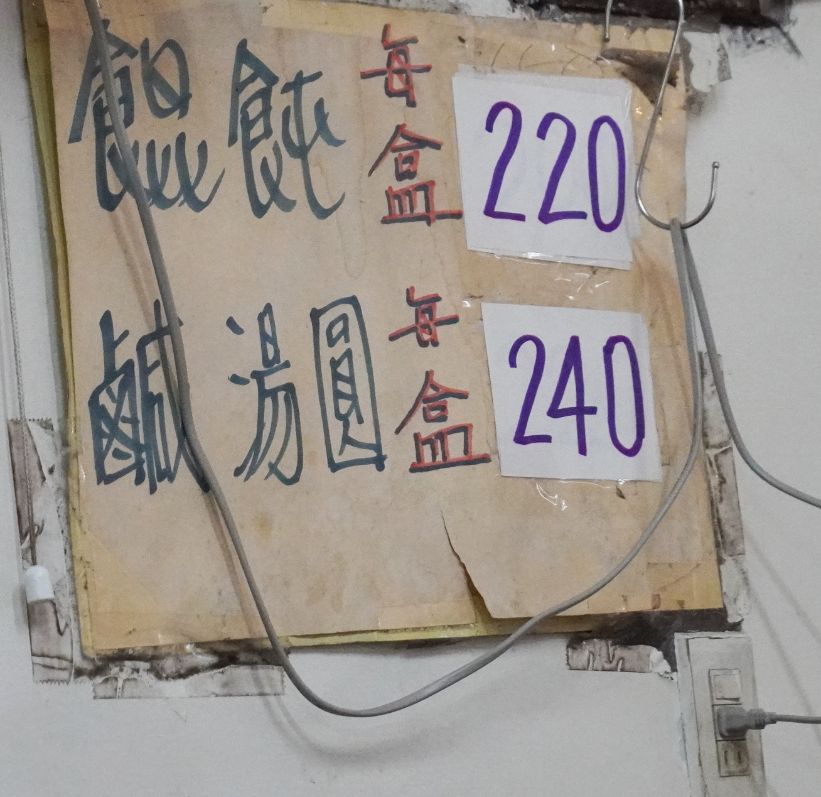 餛飩 每盒 220
鹹湯圓 每盒 240